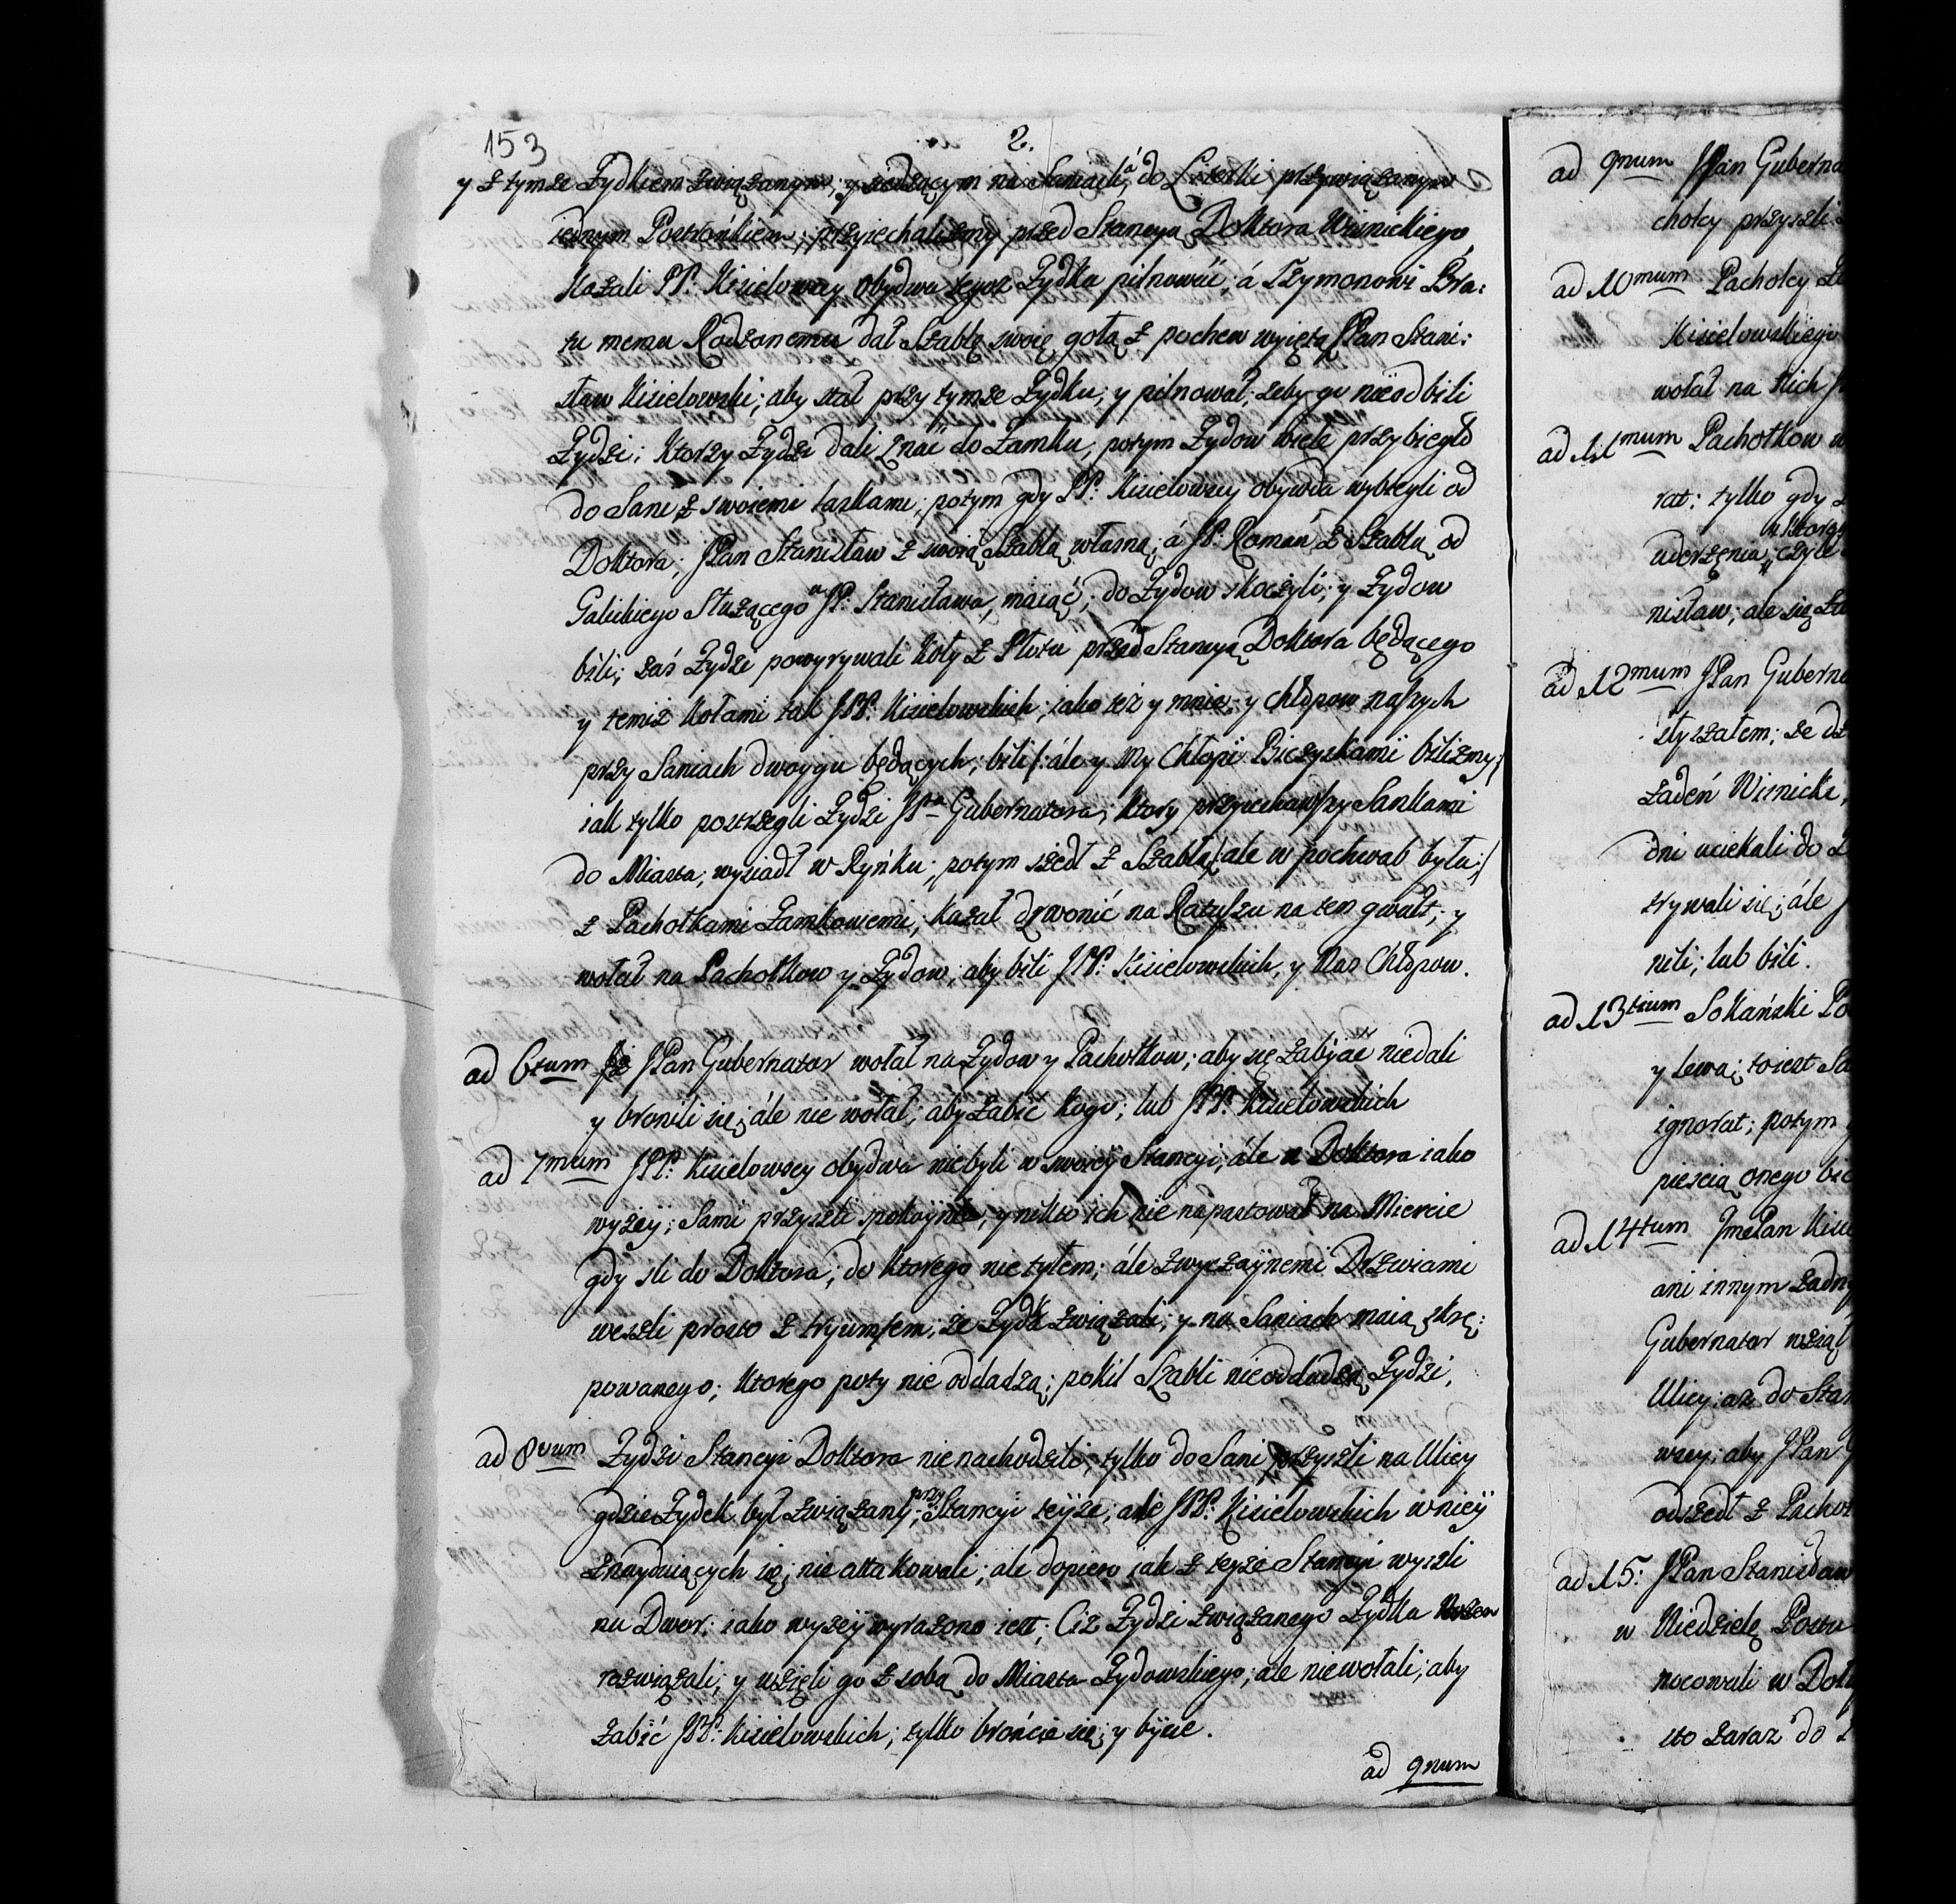 153
2.
y z tymże Żydkiem związanym; y siedzącym na Saniach, á do Literki przywiązanym
iednym Postrońkiem; przyiechaliszmy przed Stancyą Doktora Wisnickiego,
Kazali PP: Kisielowscy obydwa tegoż Żydka pilnować; á Szymonowi Bra:
tu memu Rodzonemu dał Szablę swoię gołą z pochew wyiętą JPan Stani:
sław Kisielowski; aby stał przy tymże Żydku; y pilnował, żeby go nieodbili
Żydzi; Ktorzy Żydzi dali znać do Zamku, potym Żydow wiele przybiegło
do Sani z swoiemi laskami; potym gdy PP: Kisielowscy obydwa wybiegli od
Doktora; JPan Stanisław z swoią Szablą własną; á JP: Roman z Szablą od
Galickiego Służącego u JP: Stanisława, maiąc; do Żydow skoczyli; y Żydow
bili; zaś Żydzi powyrywali Koły z Płotu przed Stancyą Doktora będącego
y temiż Kołami tak JPP: Kisielowskich; iako też y mnie; y Chłopow naszych
przy Saniach dwoygu będących; bili /: ále y My Chłopi Biczyskami biliszmy;/
iak tylko postrzegli Żydzi JPa Gubernatora; Ktory przyiechawszy Sankami
do Miasta; wysiadł w Ryńku; potym szedł z Szablą /: ale w pochwach była;/
z Pachołkami Zamkowemi; Kazał dzwonić na Ratuszu na ten gwałt; y
wołał na Pachołkow y Żydow; aby bili JPP: Kisielowskich, y Nas Chłopow.
ad 6tum JPan Gubernator wołał na Żydow y Pachołkow; aby się zabijać niedali
y bronili się; ále nie wołał; aby zabić kogo; lub JPP: Kisielowskich
ad 7mum JPP: Kisielowscy obydwa niebyli w swoiey Stancyi; ále u Doktora iako
wyżey; Sami przyszli spokoynie; y nikto ich nie napastował na Miescie
gdy szli do Doktora; do Ktorego nie tyłem; ále zwyczaynemi Drzwiami
weszli prosto z tryumfem; że Żydka związali; y na Saniach maią skrę:
powanego; Ktorego poty nie oddadzą; pokil Szabli nieoddadzą Żydzi.
ad 8vum Żydzi Stancyi Doktora nie nachodzili; tylko do Sani przyszli na Ulicy
gdzie Żydek był związany; przy Stancyi teyże; ale JPP: Kisielowskich w niey
znayduiących się; nie attakowali; ale dopiero iak z teyże Stancyi wyszli
na Dwor: iako wyżey wyrażono iest; Ciż Żydzi związanego Żydka
rozwiązali; y wzięli go z sobą do Miasta Żydowskiego; ale niewołali; aby
zabić JPP: Kisielowskich; tylko brońcie się; y byicie.
ad 9num
ad 9num JPan Guberna
cholcy przyszli
ad 10mum Pacholcy
Kisielowskiego
wołał na Nich
ad 11mum Pachołkow
rat: tylko gdy
uderzenia
nisław; ale się
ad 12mum JPan Guberna
słyszałem; że
Żaden Wisnicki,
dni uciekali do
trywali się; ále
nili; lub bili.
ad 13tium Sokański
y Lewa; to iest
ignorat; potym
pięscią onego
ad 14tum JmćPan Kisi
ani innym żadn
Gubernator wziął
Ulicy; aż do Stan
wscy; aby JPan
odszedł z Pachoł
ad 15: JPan Stanisław
w Niedzielę Postu
nocowali w
sto zaraz do